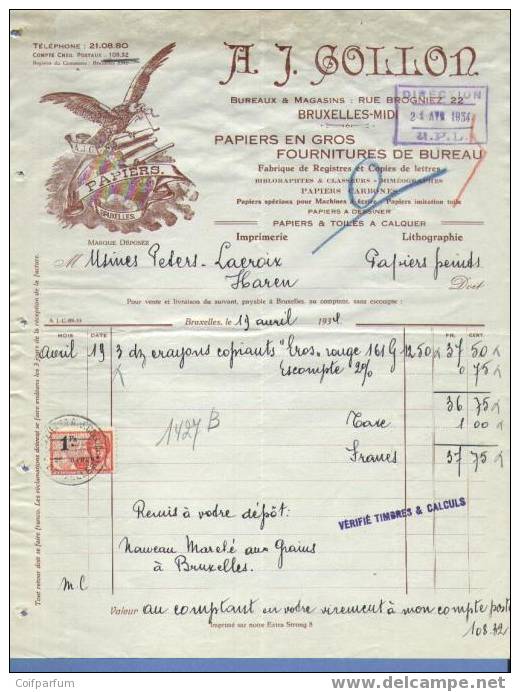 TÉLÉPHONE : 21.08.80
COMPTE CHEQ. POSTAUX - 108.32
Registre du Commerce : Bruxelles
A. J. GOLLON
BUREAUX & MAGASINS : RUE BROGNIEZ 22
BRUXELLES-MIDI
DIRECTION
21 AVR 1934
U.P.L.
PAPIERS EN GROS
FOURNITURES DE BUREAU
Fabrique de Registres et Copies de lettres
BIBLORAPHTES & CLASSEURS - MIMÉOGRAPHES
PAPIERS CARBONES
Papiers spéciaux pour Machines à écrire - Papiers imitation toile
PAPIERS A DESSINER
PAPIERS & TOILES A CALQUER
A.J.G.
PAPIERS.
BRUXELLES.
MARQUE DÉPOSÉE
Imprimerie
Lithographie
M Usines Peters-Lacroix Papiers peints
Haren
Doit
Pour vente et livraison du suivant, payable à Bruxelles, au comptant, sans escompte :
Bruxelles, le 19 avril 1934.
MOIS DATE FR. CENT.
avril 19 3 dz crayons copiants "Eros" rouge 161G 12.50 37 50
Escompte 2% 0 75
36 75
1427 B
Taxe 1 00
Francs 37 75
1 Fr
Remis à votre dépôt:
VÉRIFIÉ TIMBRES & CALCULS
Nouveau Marché aux Grains
à Bruxelles.
m.C
Valeur au comptant en votre virement à mon compte post
108.32
Imprimé sur notre Extra Strong 8
Tout retour doit se faire franco. Les réclamations doivent se faire endéans les 3 jours de la réception de la facture.
Coifparfum
www.delcampe.net